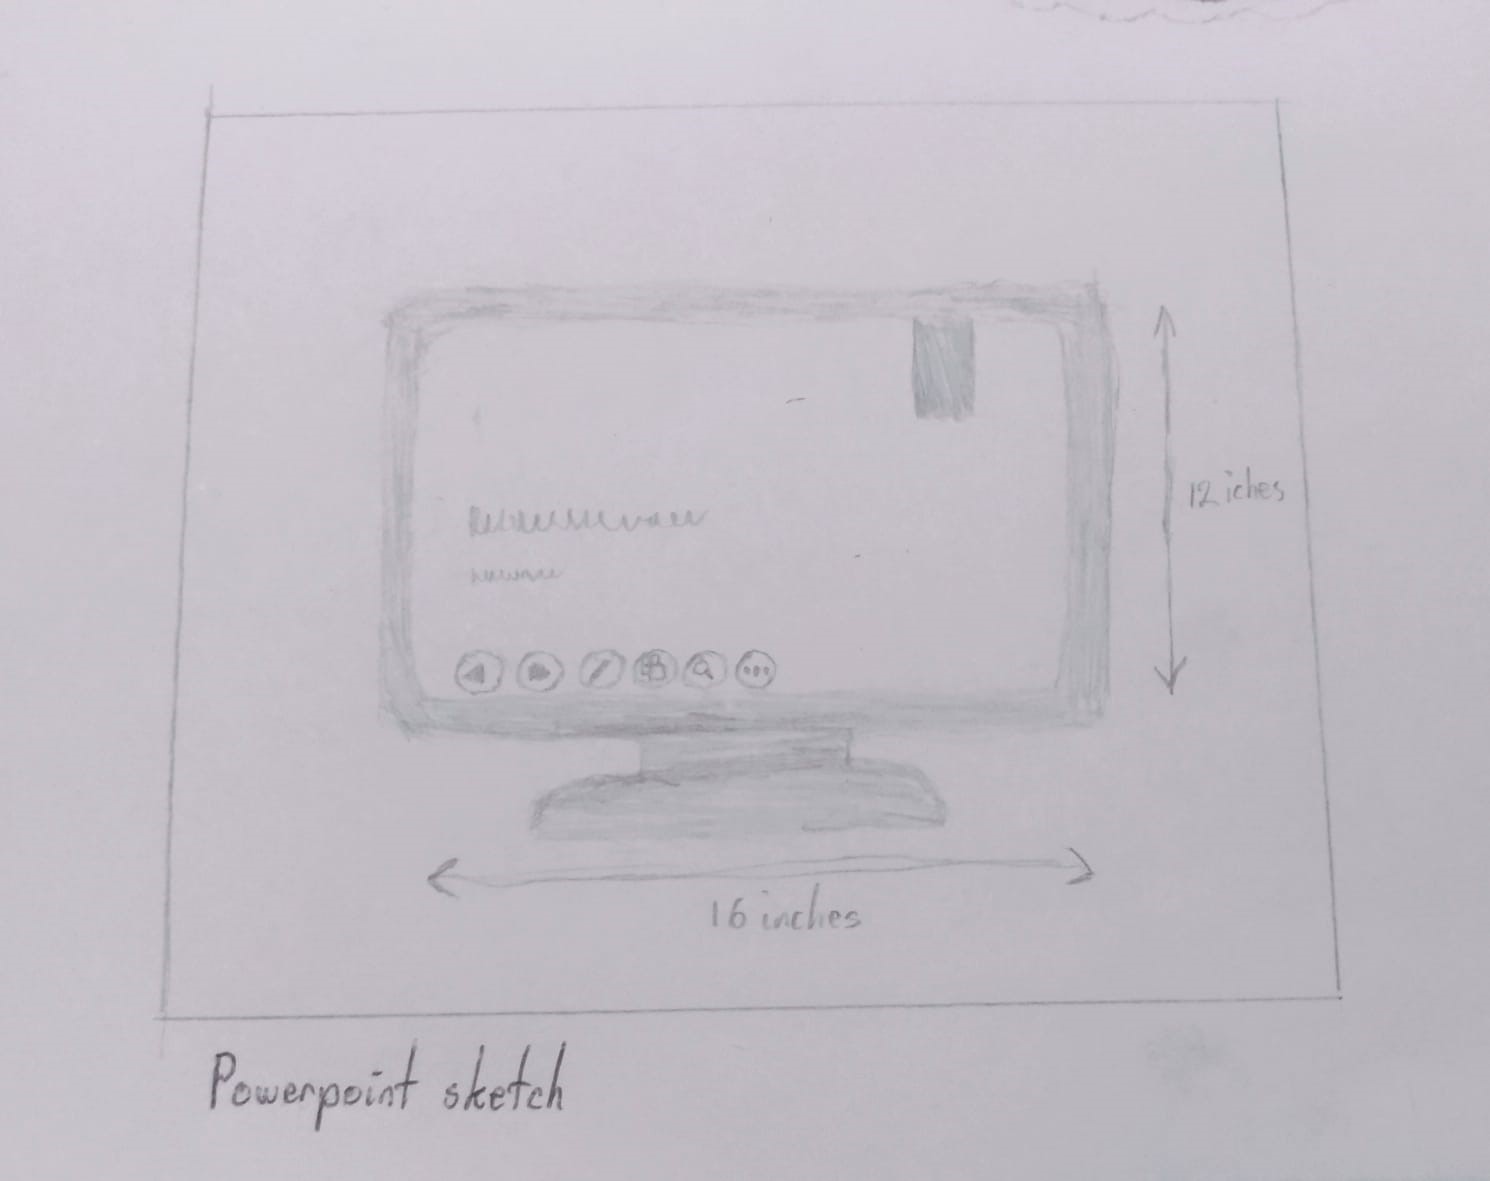 12 iches
16 inches
Powerpoint sketch